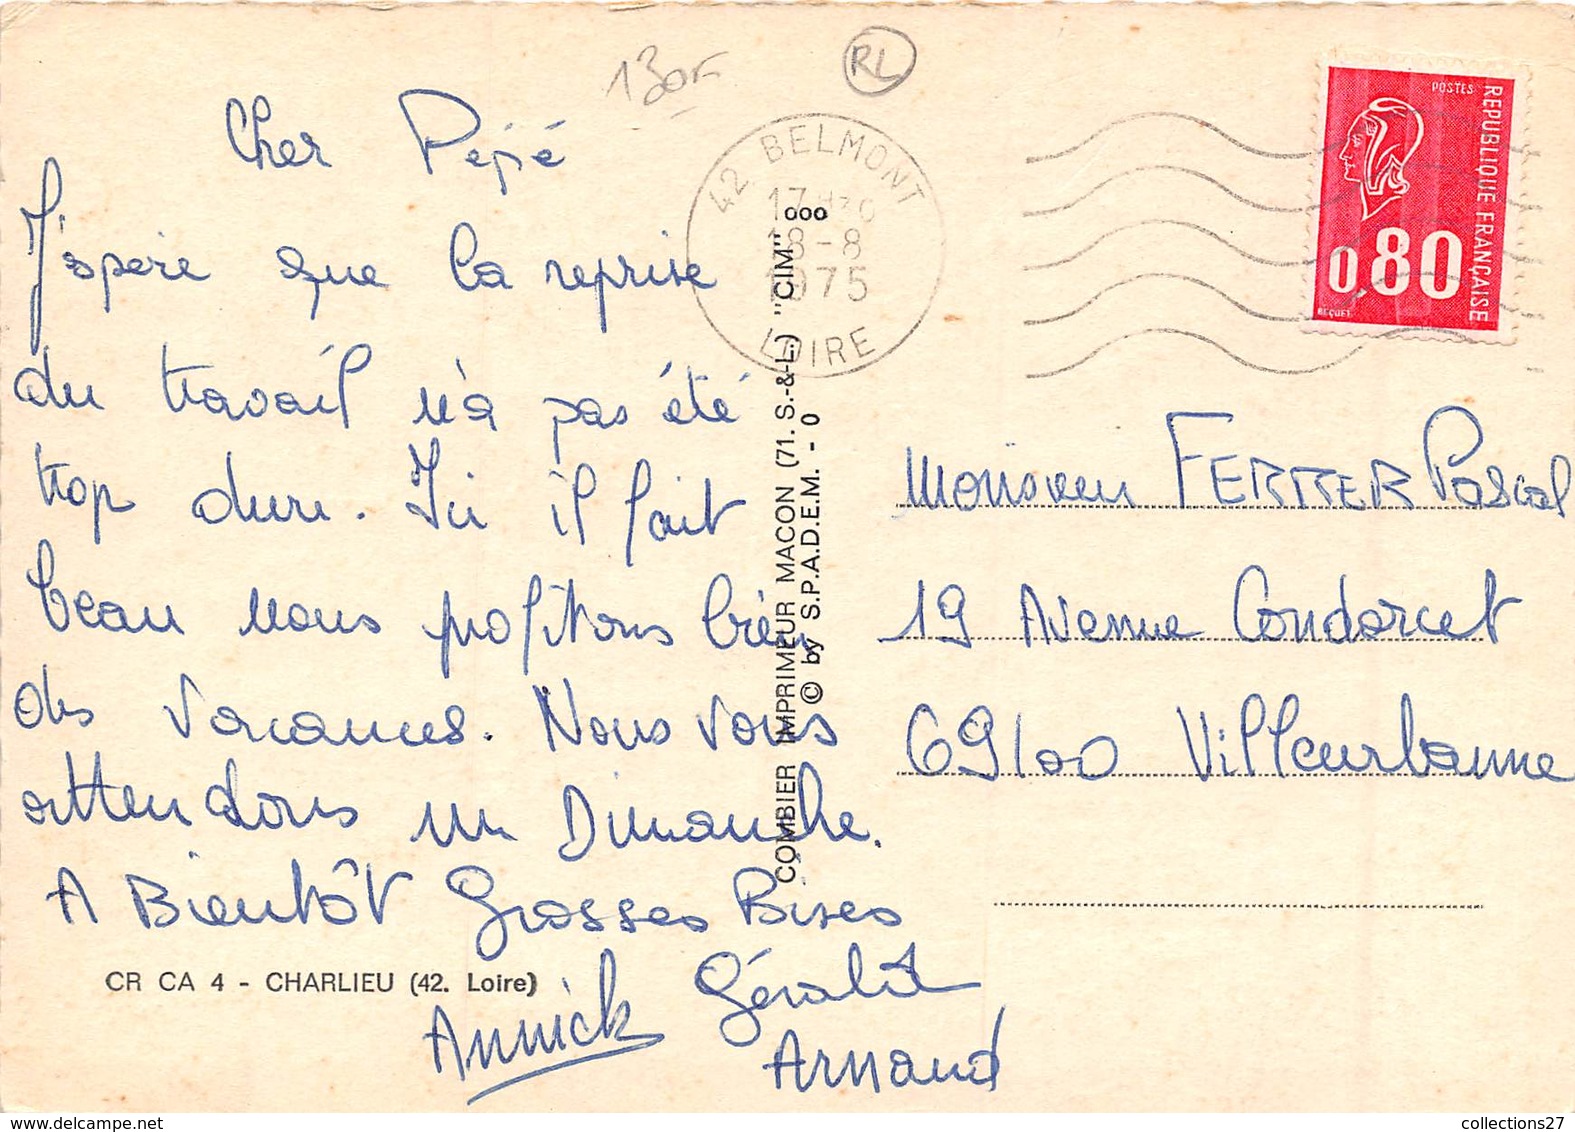 130F
RL
Cher Pépé
J'espère que la reprise
du travail n'a pas été
trop dure. Ici il fait
beau nous profitons bien
des vacances. Nous vous
attendons un Dimanche.
A Bientôt Grosses Bises
Annick Gérald
Arnaud
CR CA 4 - CHARLIEU (42. Loire)
COMBIER IMPRIMEUR MACON (71. S.-&-L.) "CIM" ooo
© by S.P.A.D.E.M. - 0
42 BELMONT
18-8
1975
LOIRE
POSTES
REPUBLIQUE FRANÇAISE
0,80
BEQUET
Monsieur FERRER Pascal
19 Avenue Condorcet
69100 Villeurbanne
collections27